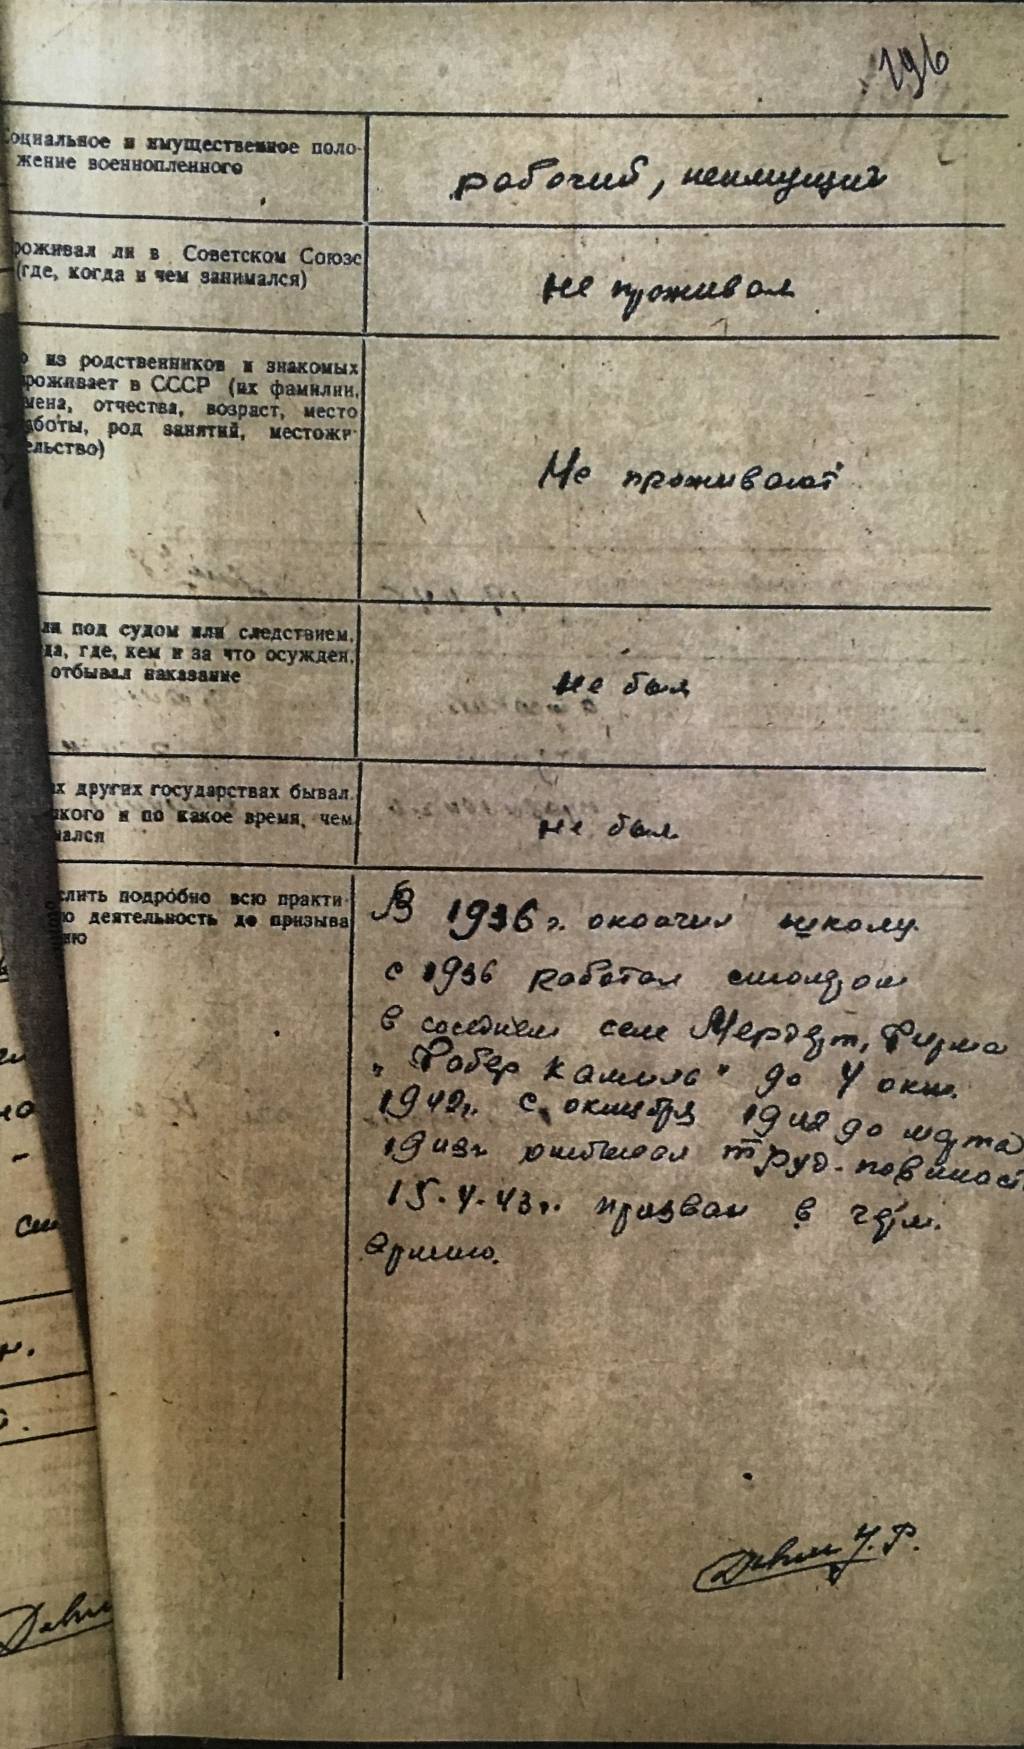 196
Социальное и имущественное поло-
жение военнопленного
рабочий, неимущий
роживал ли в Советском Союзе
(где, когда и чем занимался)
не проживал
о из родственников и знакомых
роживает в СССР (их фамилии,
мена, отчества, возраст, место
аботы, род занятий, местожи-
ельство)
Не проживают
ли под судом или следствием,
да, где, кем и за что осужден,
отбывал наказание
не был
их других государствах бывал,
акого и по какое время, чем
мался
не был
слить подробно всю практи-
ю деятельность до призыва
ию
В 1936 г. окончил школу.
с 1936 работал столяром
в соседнем селе фирма
"Робер Камиль" до 4 окт.
1942г. с октября 1942 до марта
1943г отбывал труд. повиност
15.4.43г. призван в герм.
армию.